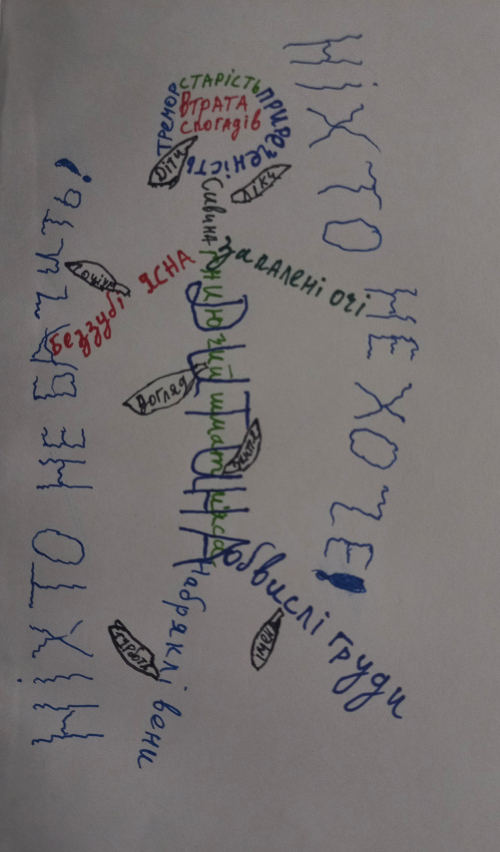 НІХТО НЕ ХОЧЕ!
СТАРІСТЬ
ТРЕМОР
ВТРАТА
СПОГАДІВ
приреченість
Діти
Ліки
Сивина
Запалені очі
Беззубі ЯСНА
гниючий шмат м'яса
ДИТИНА
Догляд
обвислі груди
Набряклі вени
НІХТО НЕ